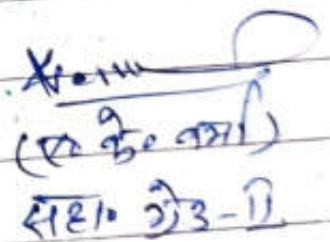 (एस० के० वर्मा)
सहा० ग्रेड-II